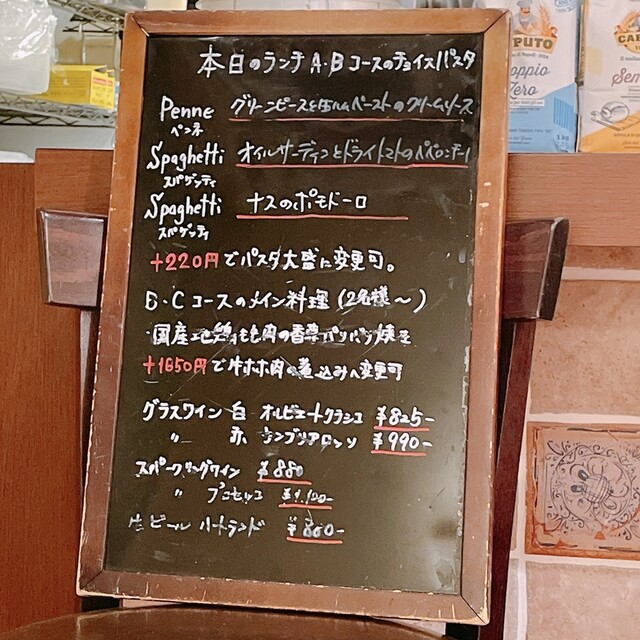 本日のランチ A・Bコースのチョイスパスタ
Penne グリーンピースと生ハムペーストのクリームソース
ペンネ
Spaghetti オイルサーディンとドライトマトのペペロンチーノ
スパゲッティ
Spaghetti ナスのポモドーロ
スパゲッティ
+220円でパスタ大盛に変更可。
B・Cコースのメイン料理(2名様～)
国産地鶏もも肉の香草パン粉焼き
+1650円で牛ホホ肉の煮込みへ変更可
グラスワイン 白 オルビエートクラシコ ¥825-
〃 赤 ¥990-
スパークリングワイン ¥880
〃 プロセッコ ¥1,100-
生ビール ハートランド ¥860-
PUTO
oppio
ero
CAP
Sem